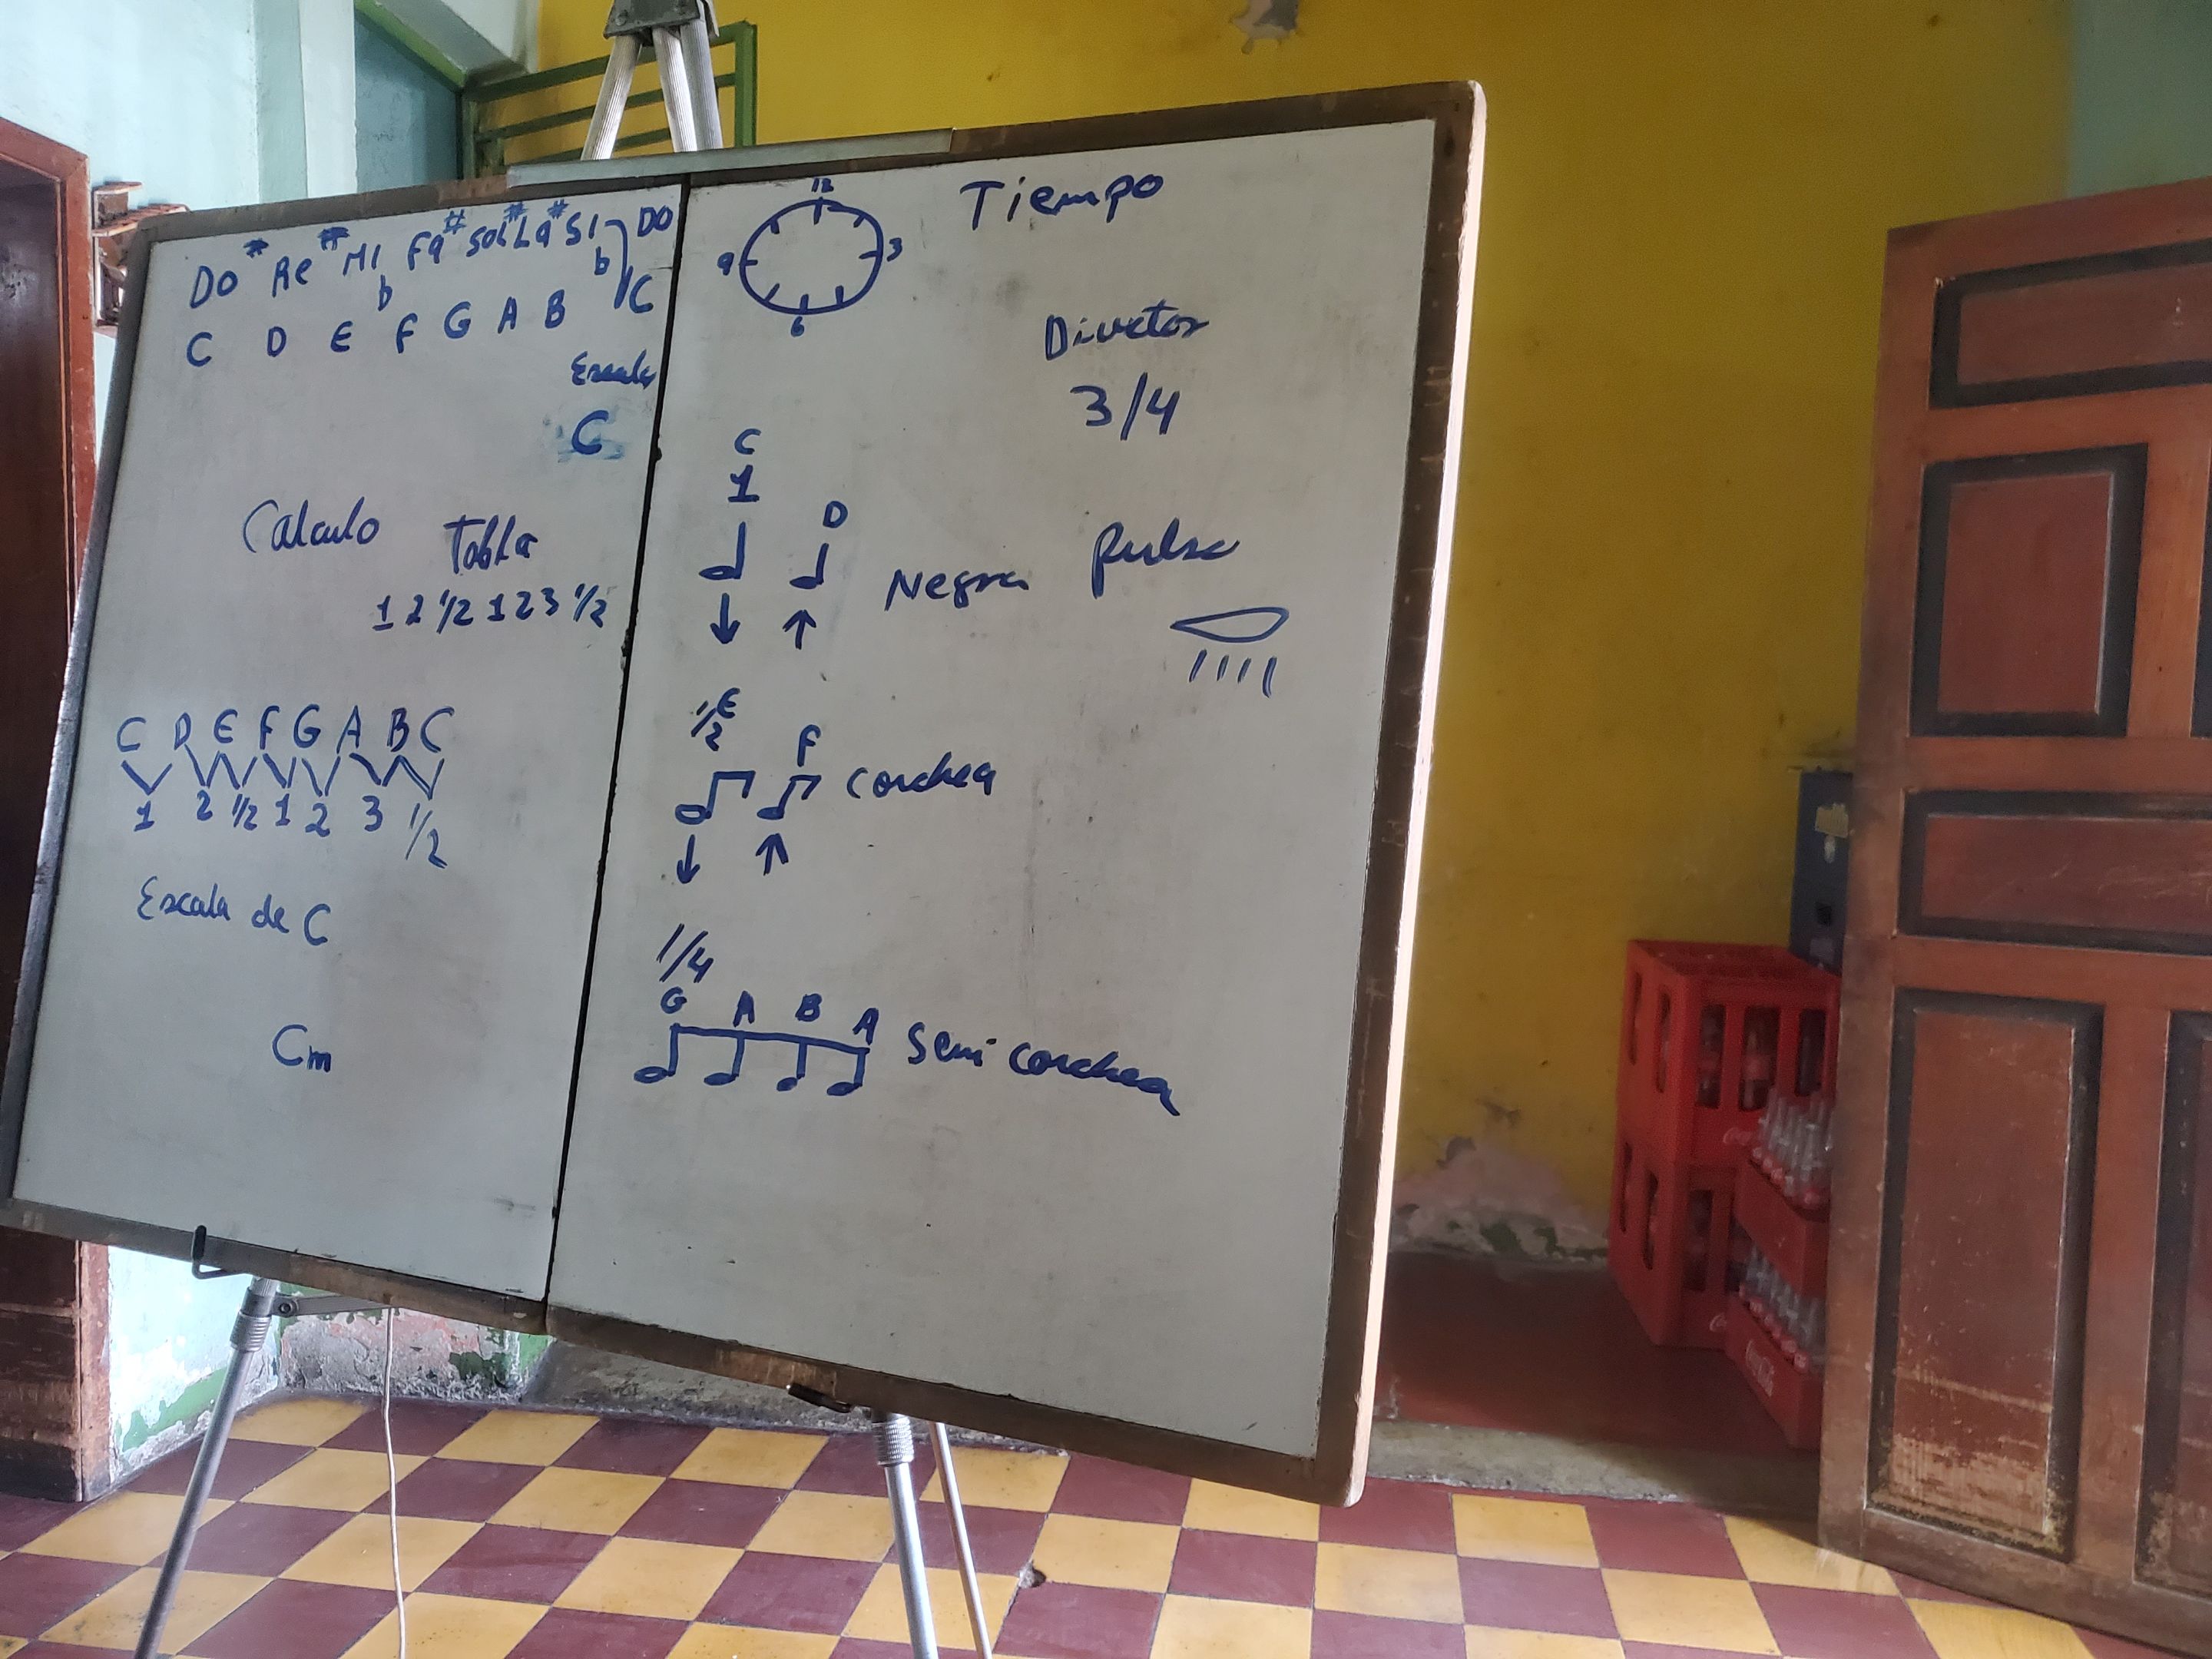 Do # Re # Mi Fa # Sol # La # Si DO
b b
C D E F G A B C
Escala
C
Calculo Tabla
1 2 1/2 1 2 3 1/2
C D E F G A B C
1 2 1/2 1 2 3 1/2
Escala de C
Cm
Tiempo
12
9 3
6
Director
3/4
C
1
D
Negra pulso
1/2 E
F
Corchea
1/4
G A B A
Semi corchea
Coca-Cola